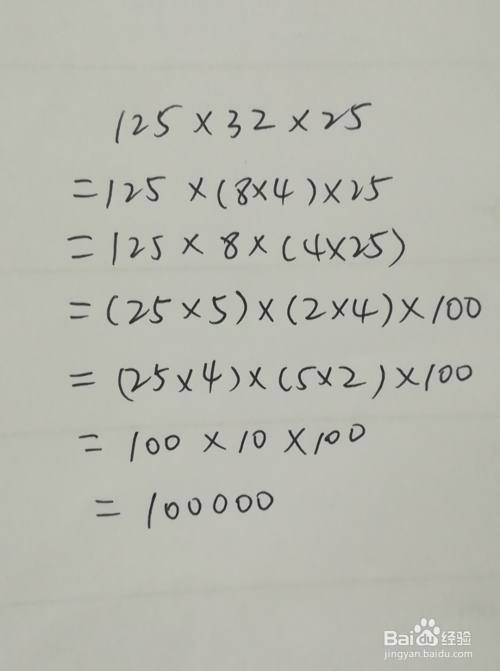 125×32×25
=125×(8×4)×25
=125×8×(4×25)
=(25×5)×(2×4)×100
=(25×4)×(5×2)×100
=100×10×100
=100000
Baidu经验
jingyan.baidu.com